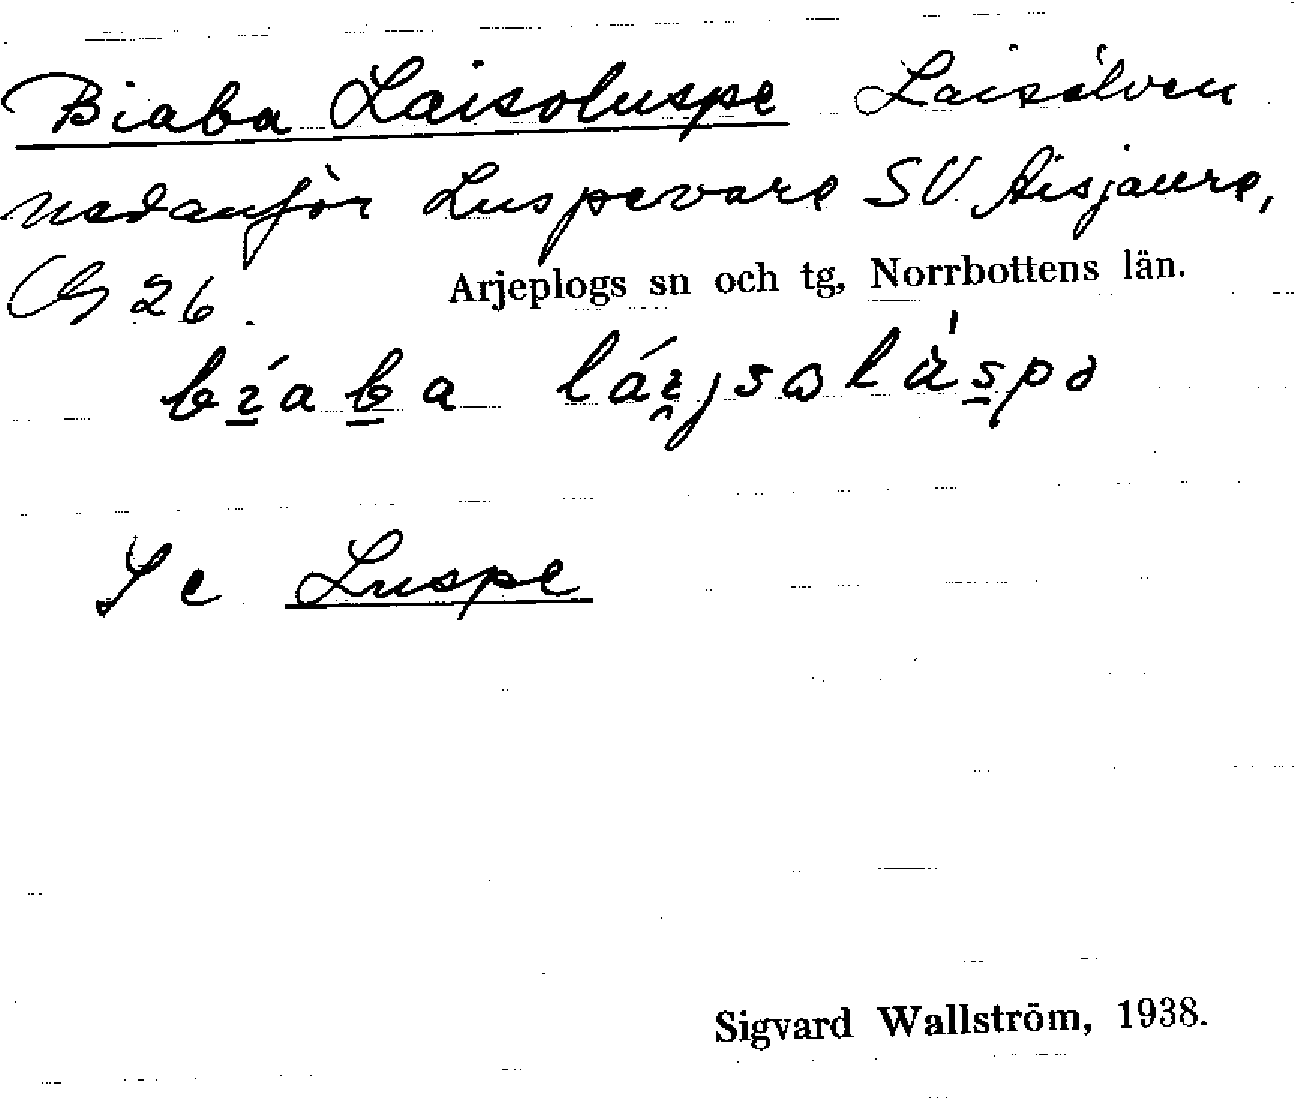 Biaba Laisoluspe Laisälven
nedanför Luspevare SV. Aisjaure,
26.
Arjeplogs sn och tg, Norrbottens län.
Se Luspe
Sigvard Wallström, 1938.